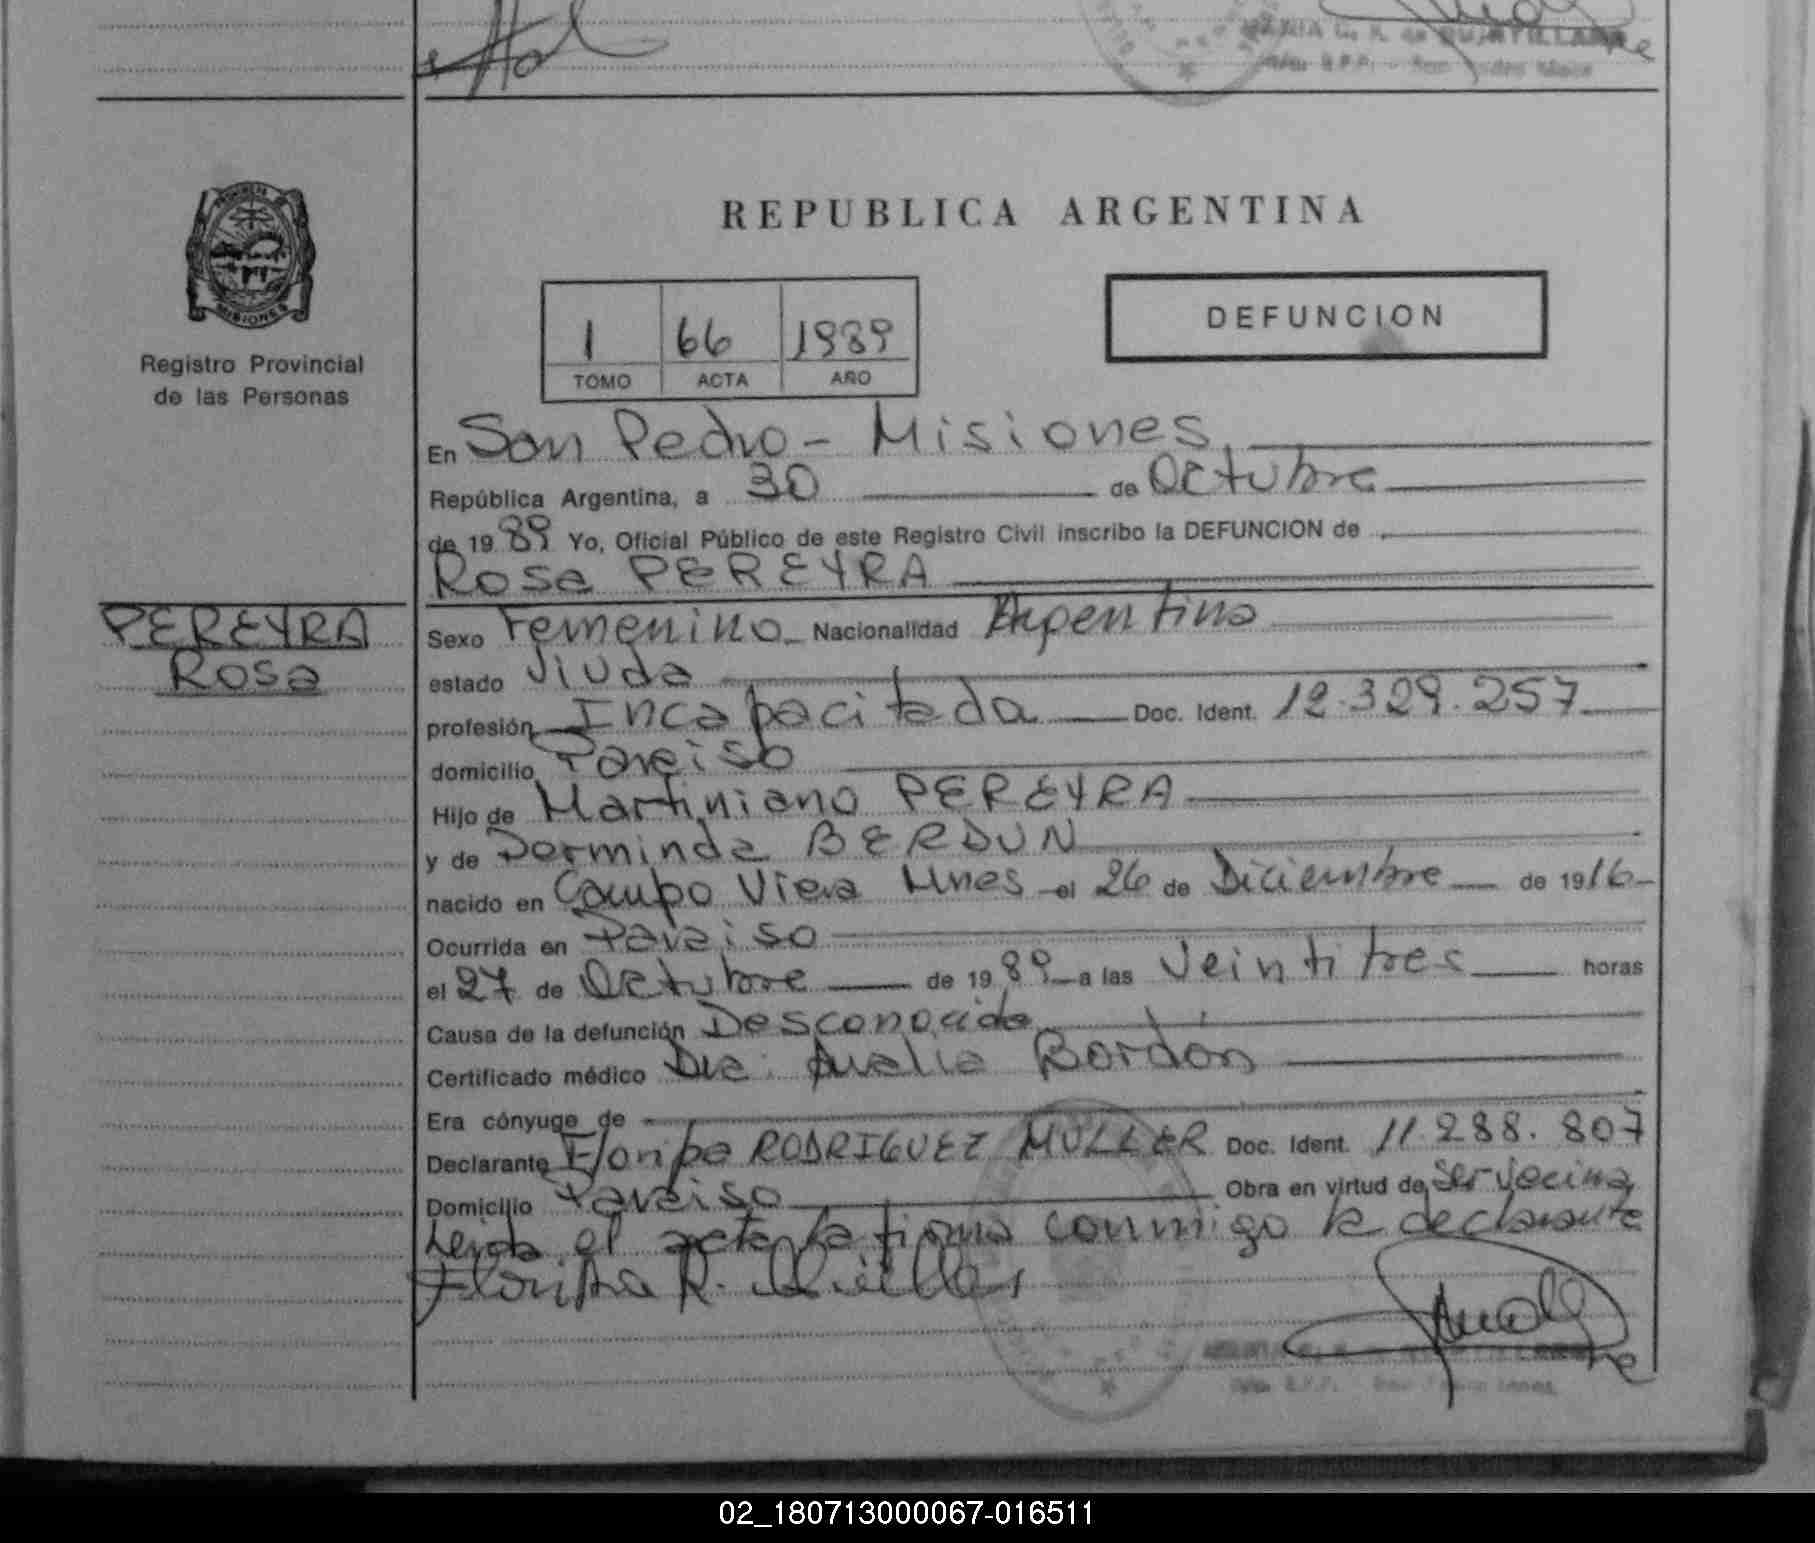 MARIA G. K. de QUINTILLANA
REPUBLICA ARGENTINA
PROVINCIA DE
MISIONES
Registro Provincial
de las Personas
1 66 1989
TOMO ACTA AÑO
DEFUNCION
En San Pedro - Misiones
República Argentina, a 30 de Octubre
de 1989 Yo, Oficial Público de este Registro Civil inscribo la DEFUNCION de
Rosa PEREYRA
PEREYRA
Rosa
Sexo Femenino Nacionalidad Argentina
estado Viuda
profesión Incapacitada Doc. Ident. 12.329.257
domicilio Paraiso
Hijo de Martiniano PEREYRA
y de Dorminda BERDUN
nacido en Campo Viera Mnes el 26 de Diciembre de 1916
Ocurrida en Paraiso
el 27 de Octubre de 1989 a las Veintitres horas
Causa de la defunción Desconocida
Certificado médico Dra. Bordón
Era cónyuge de
Declarante Floripa RODRIGUEZ MULLER Doc. Ident. 11.288.807
Domicilio Paraiso Obra en virtud de Ser Vecina
Leida el acta la firma conmigo la declarante
Floripa R. Müller
02_180713000067-016511